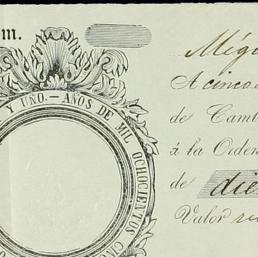 m.
Y UNO.—AÑOS DE MIL OCHOCIENTOS
Méj
A cinco
de Camb
á la Orden
de die
Valor